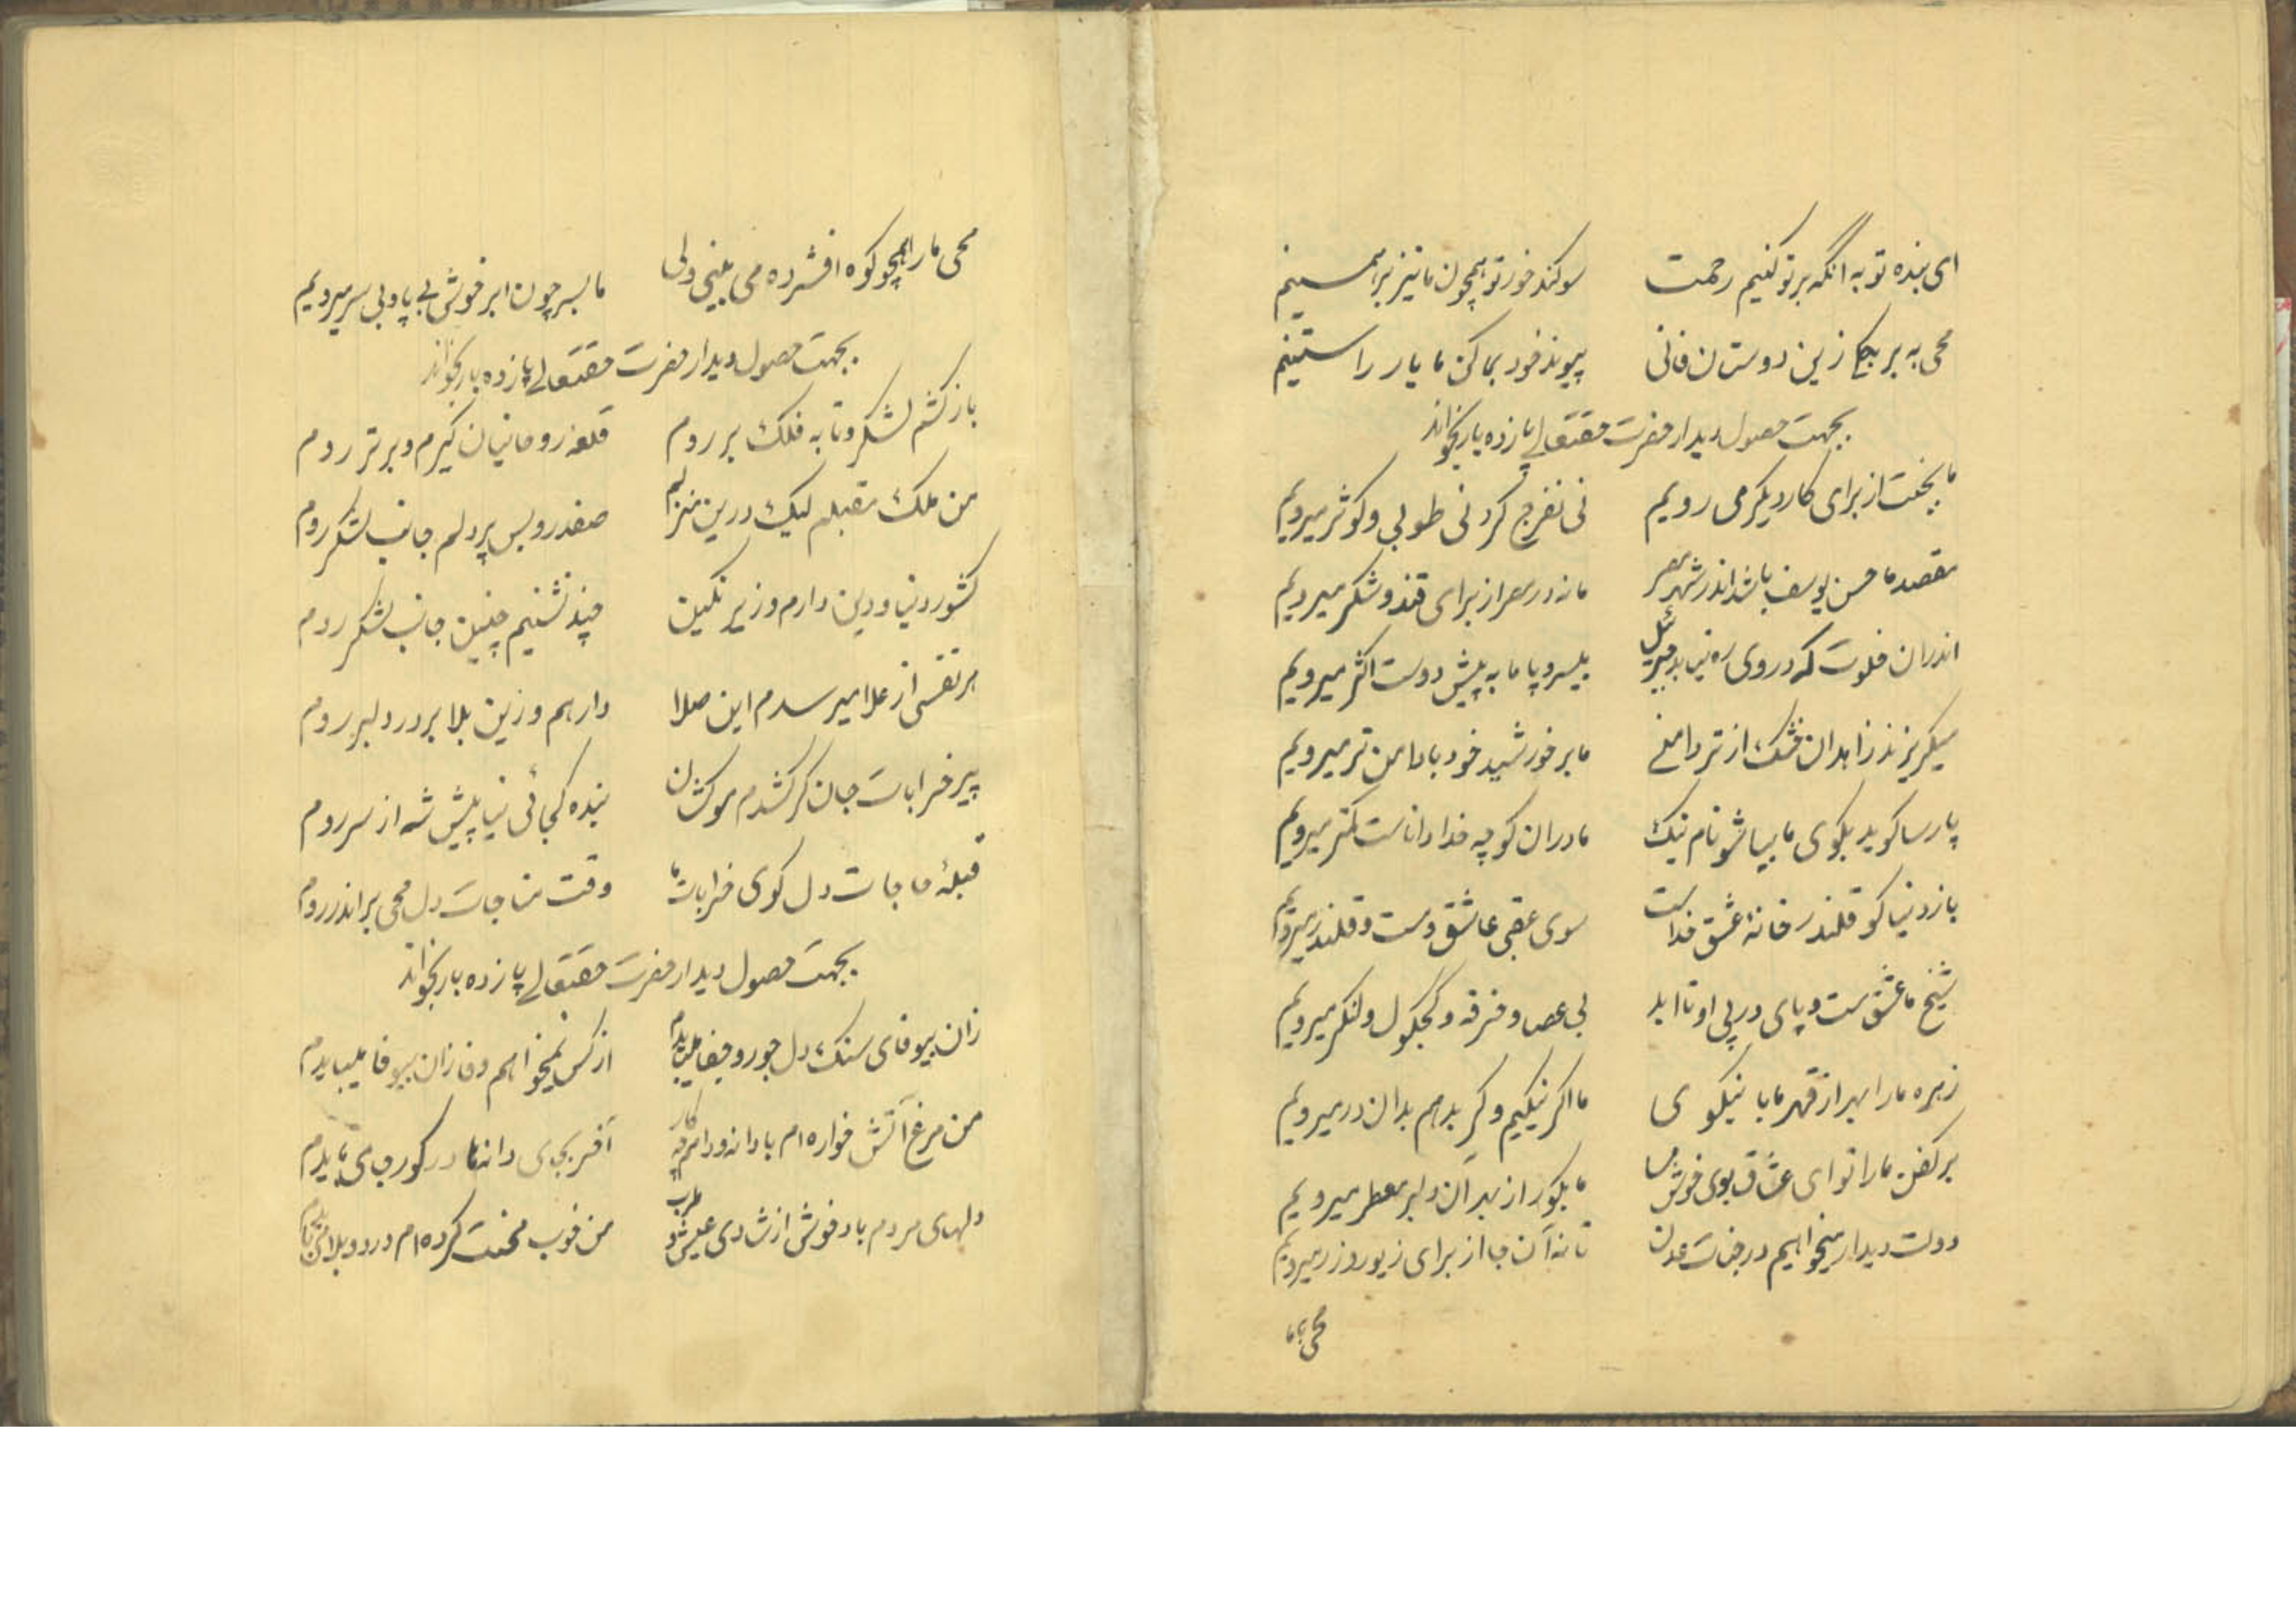 ای بنده توبه آنگه بر تو کنیم رحمت سوکند خور تو همچون ما نیز براهمینیم
محی به بر بیکجا زین دوستان فانی پیوند خود بما کن ما یار راستینیم
بجهت حصول دیدار حضرت حقتعالے پانزده بار بخواند
ما بجنت از برای کار دیکر می رویم نی تفرج کردنی طوبی و کوثر میرویم
مقصد ما حسن یوسف باشد اندر شهر مصر ما نه در مصر از برای قند و شکر میرویم
اندران خلوت که در وی ره نیابد جبرئیل بیسر و پا ما به پیش دوست اکثر میرویم
میکریزند زاهدان خشک از تر دامنے ما بر خورشید خود با دامن تر میرویم
پارسا کوید بکوی ما بیا شو نام نیک ما دران کوچه خدا داناست کمتر میرویم
باز دنیا کو قلندر خانهٔ عشق خداست سوی عقبی عاشق و مست و قلندر میرویم
شیخ ما عشق ست و پای در پی او تا ابد بی عصا و خرقه و کجکول و لنکر میرویم
زهره ما را مبر از قهر ما با نیکوی ما اکر نیکیم و کر بد هم بدان در میرویم
بر کفن ما را تو ای عشاق بوی خوش مسا ما بکور از بهر آن دلبر معطر میرویم
دولت دیدار میخواهیم در جنات عدن تا نه آن جا از برای زیور و زر میرویم
محی ما
محی ما را همچو کوه افشرده می بینی ولی ما بسر چون ابر خوش بے پا و بی سر میرویم
بجهت حصول دیدار حضرت حقتعالے پانزده بار بخواند
باز کشم لشکر و تا به فلک بر روم قلعه روحانیان کیرم و برتر روم
من ملک مقبلم لیک درین منزلم صفدر و بس پر دلم جانب لشکر روم
کشور دنیا و دین دارم و زیر نکین چند نشنیم چنین جانب لشکر روم
هر نفسی از علا میرسدم این صلا دارهم و زین بلا بر در دلبر روم
پیر خرابات جان کر کشدم موکشان بنده کجائی بیا پیش شه از سر روم
قبلهٔ حاجات دل کوی خرابات ما وقت مناجات دل محی بر اندر روم
بجهت حصول دیدار حضرت حقتعالے پانزده بار بخواند
زان بیوفای سنک دل جور و جفا میبایدم از کس نمیخواهم وفا زان بیوفا میبایدم
من مرغ آتش خواره ام با دانه و دامم چه کار آخر بجای دانها در کور جای بایدم
دلهای مردم باد خوش از شادی عیش و طرب من خوب محنت کرده ام درد و بلا می بایدم